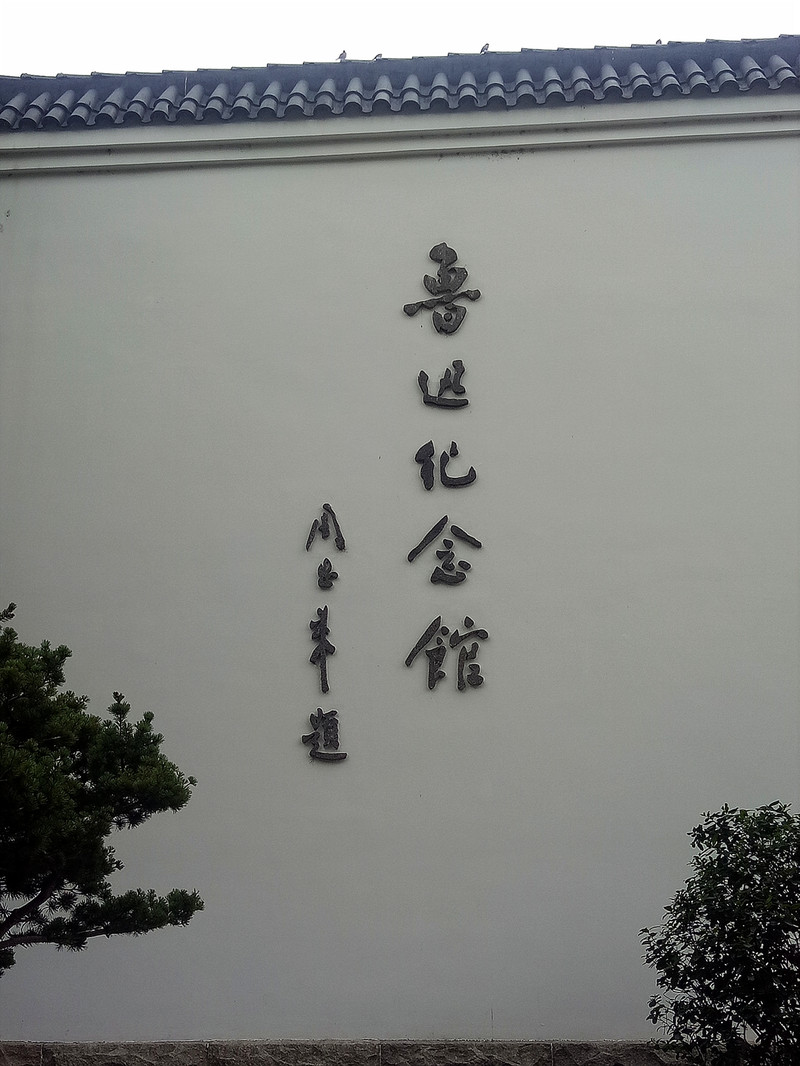 魯迅紀念館
周恩來題